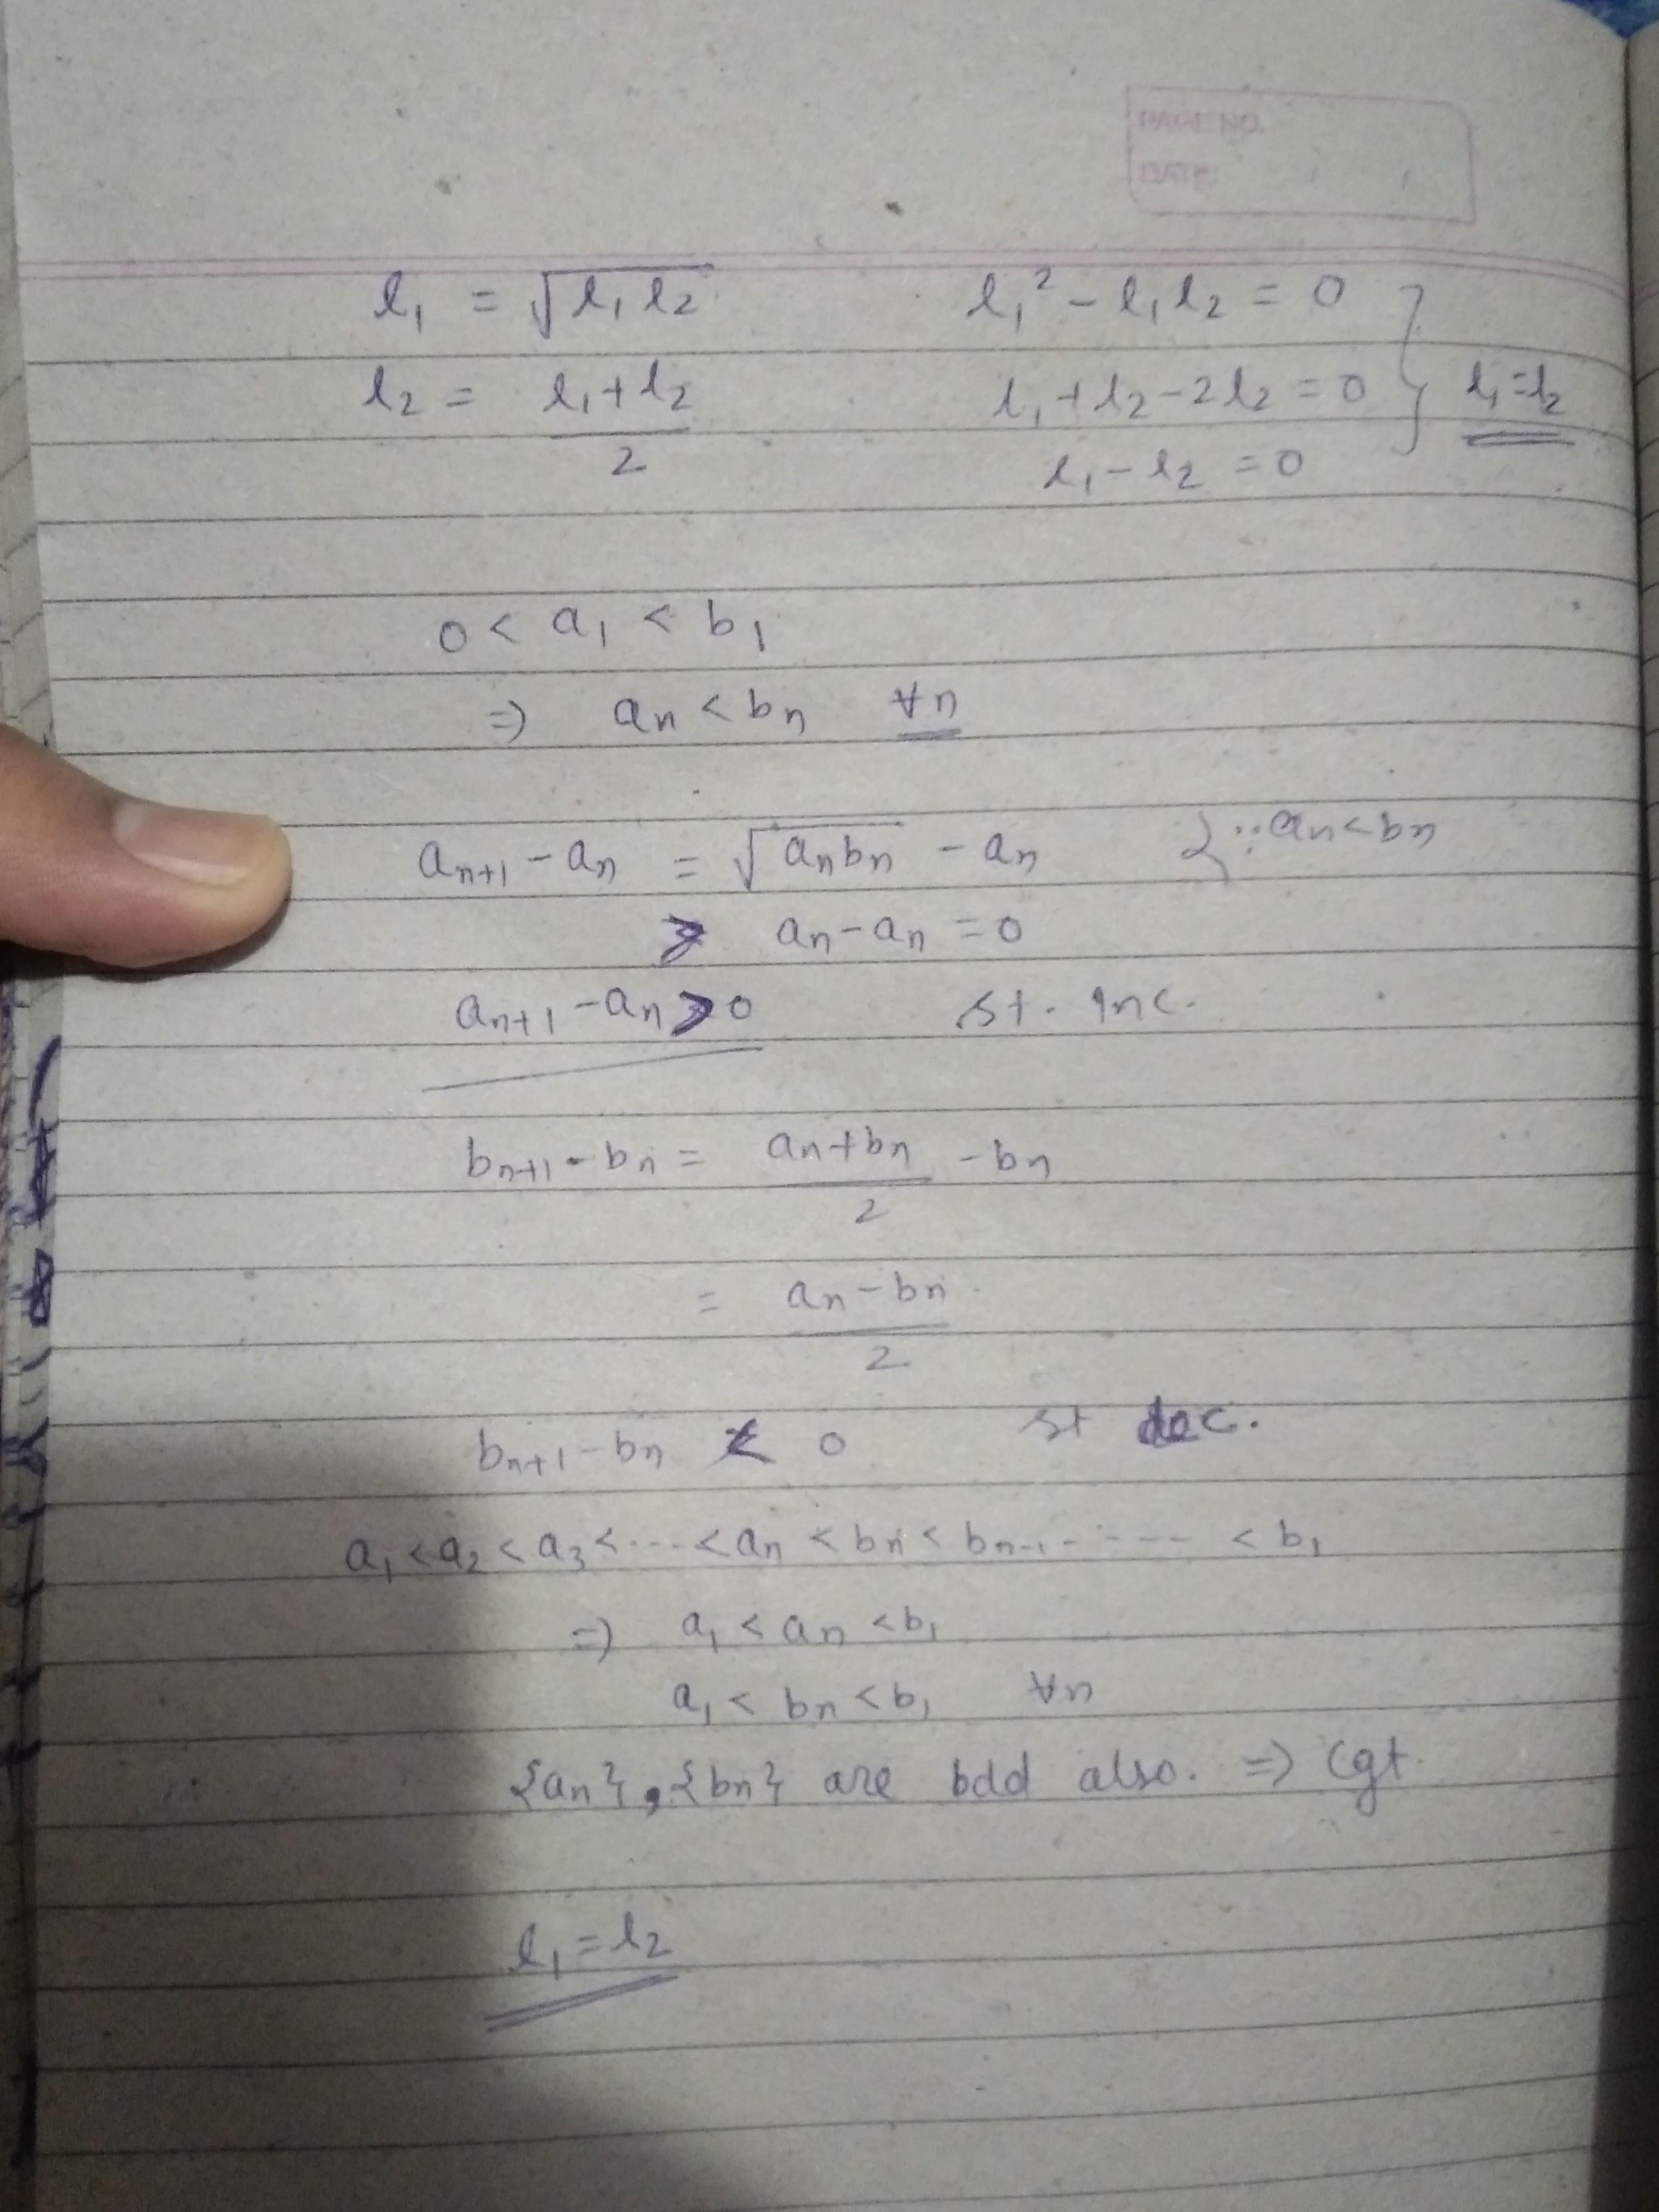 PAGE NO.
DATE: / /
l₁ = √(l₁ l₂)    l₁² - l₁l₂ = 0
l₂ = (l₁+l₂)/2    l₁+l₂-2l₂ = 0 } l₁=l₂
l₁-l₂ = 0
0 < a₁ < b₁
⇒ aₙ < bₙ ∀n
aₙ₊₁ - aₙ = √(aₙbₙ) - aₙ    {∵ aₙ<bₙ
> aₙ-aₙ = 0
aₙ₊₁ - aₙ > 0    st. Inc.
bₙ₊₁ - bₙ = (aₙ+bₙ)/2 - bₙ
= (aₙ-bₙ)/2
bₙ₊₁ - bₙ < 0    st dec.
a₁ < a₂ < a₃ < ... < aₙ < bₙ < bₙ₋₁ ...... < b₁
⇒ a₁ < aₙ < b₁
a₁ < bₙ < b₁ ∀n
{aₙ}, {bₙ} are bdd also. ⇒ Cgt.
l₁ = l₂